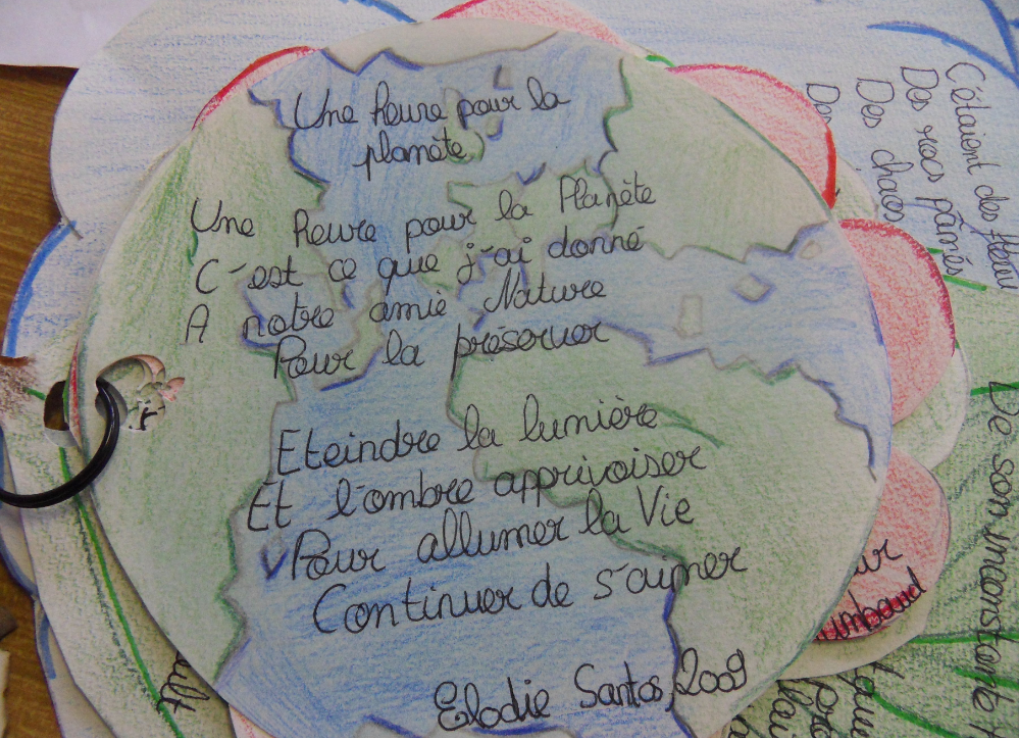 Une heure pour la
planète
Une heure pour la Planète
C'est ce que j'ai donné
A notre amie Nature
Pour la préserver
Eteindre la lumière
Et l'ombre apprivoiser
Pour allumer la Vie
Continuer de s'aimer
Elodie Santos, 2009
C'étaient des
Des rocs pâmés
Des chaos
De
De son inconstante